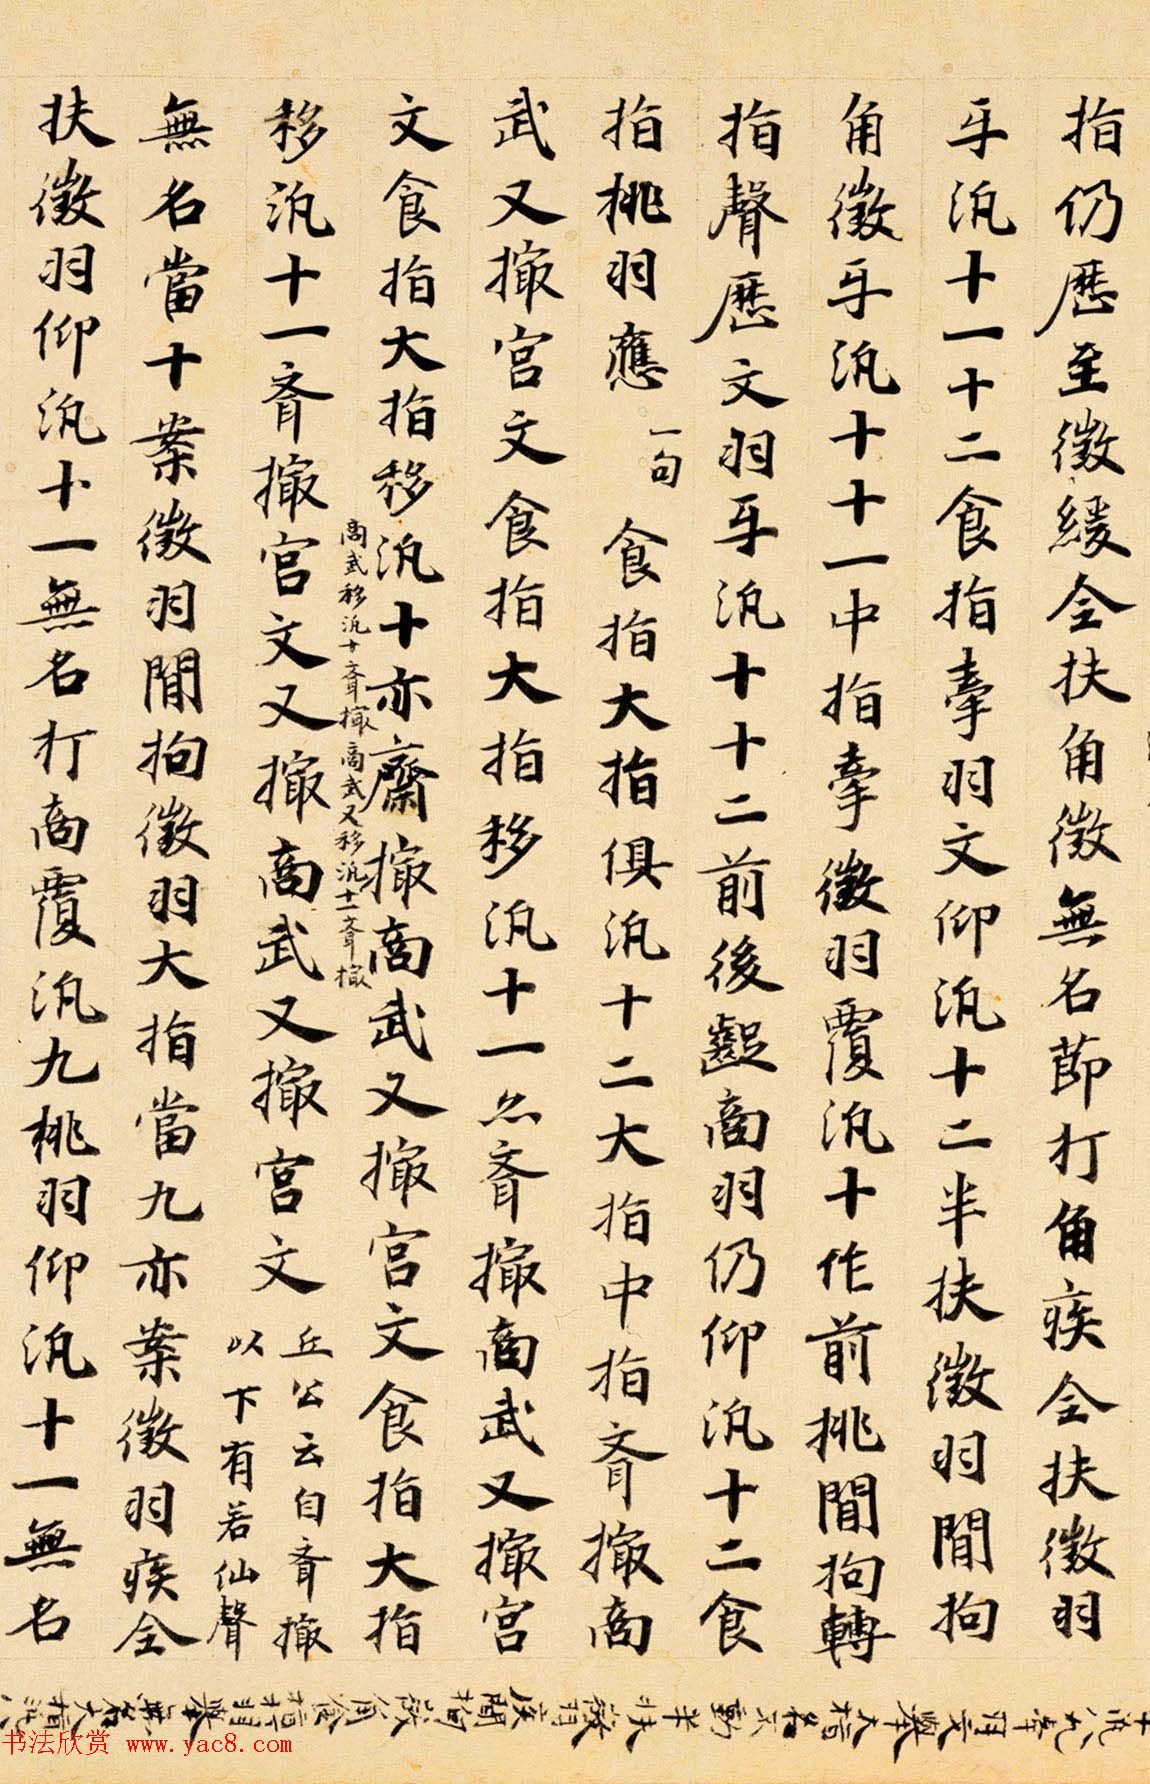 指仍歷至徵緩全扶角徵無名節打角疾全扶徵羽
牙汎十一十二食指牽羽文仰汎十二半扶徵羽間拘
角徵牙汎十十一中指牽徵羽覆汎十作前挑間拘轉
指聲歷文羽牙汎十十二前後齪商羽仍仰汎十二食
指挑羽應 一句 食指大指俱汎十二大指中指齊撮商
武又撮宮文食指大指移汎十一亦齊撮商武又撮宮
文食指大指移汎十亦齋撮商武又撮宮文食指大指
商武移汎十齊撮商武又移汎十一齊撮
移汎十一齊撮宮文又撮商武又撮宮文
丘公云自齊撮
以下有若仙聲
無名當十案徵羽間拘徵羽大指當九亦案徵羽疾全
扶徵羽仰汎十一無名打商覆汎九挑羽仰汎十一無名
书法欣赏 www.yac8.com